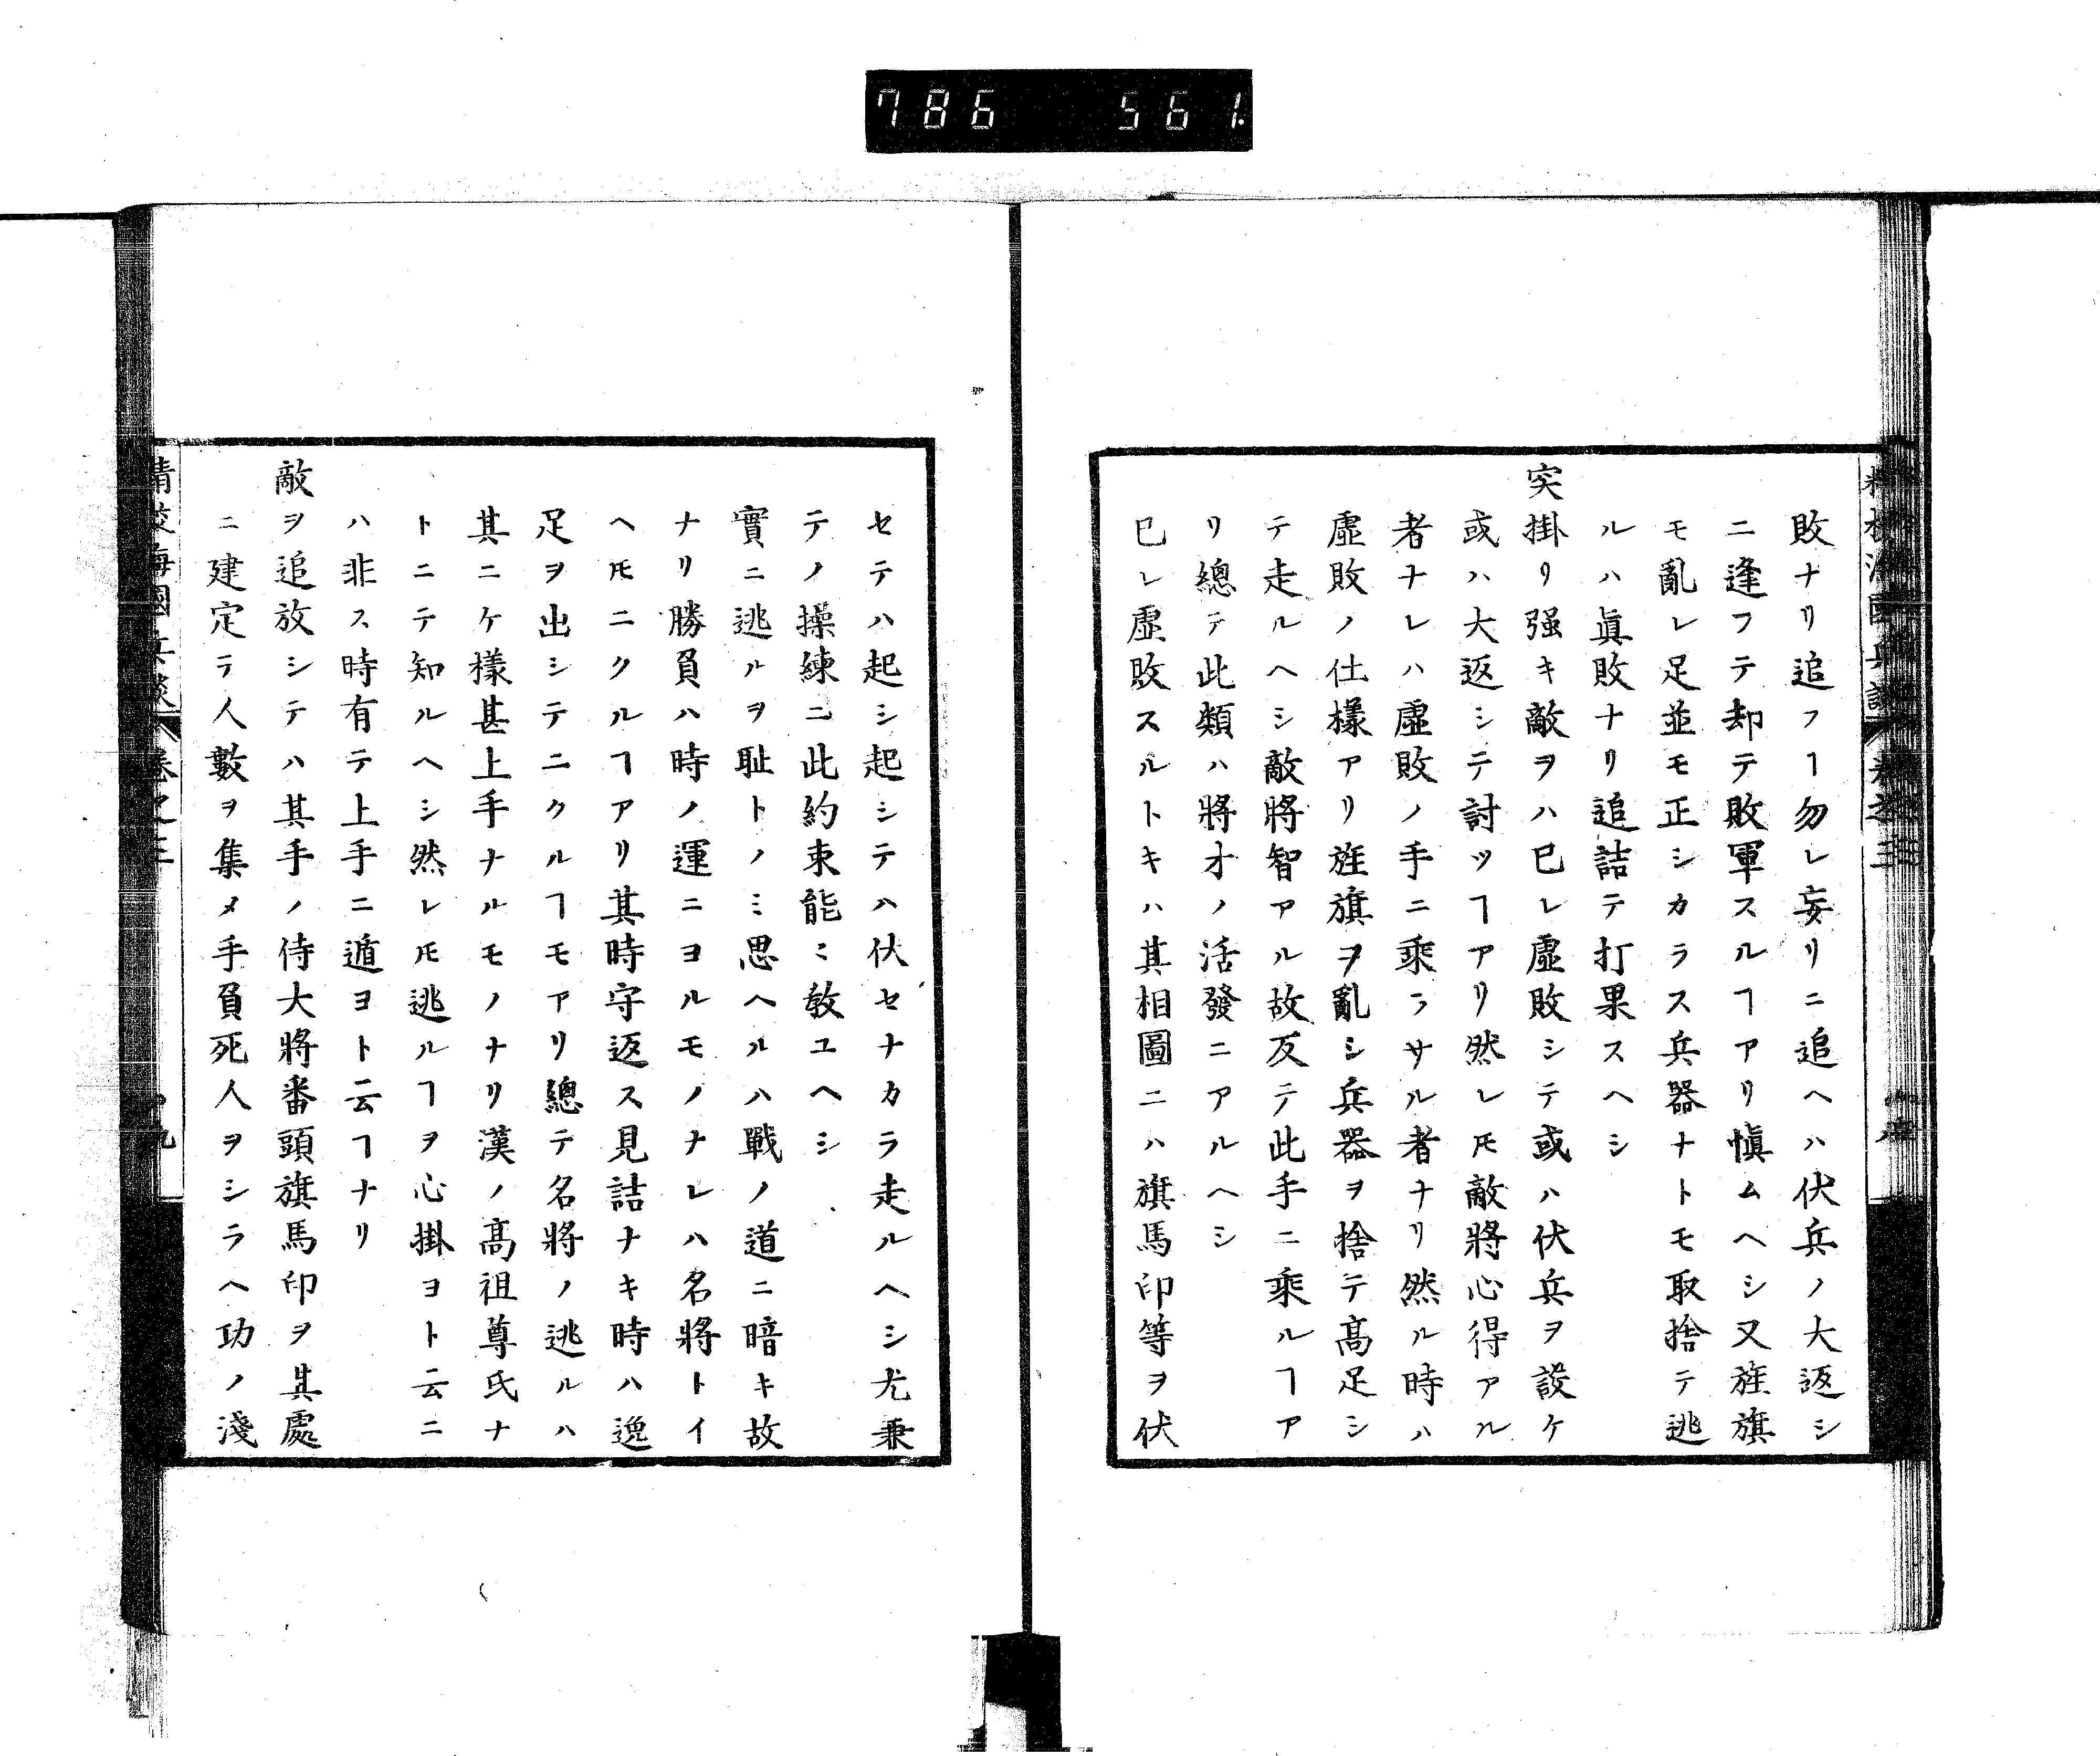 786 561
敗ナリ追フヿ勿レ妄リニ追ヘハ伏兵ノ大返シ
ニ逢フテ却テ敗軍スルヿアリ愼ムヘシ又旌旗
モ亂レ足並モ正シカラス兵器ナトモ取捨テ逃
ルハ眞敗ナリ追詰テ打果スヘシ
突掛リ强キ敵ヲハ巳レ虛敗シテ或ハ伏兵ヲ設ケ
或ハ大返シテ討ツヿアリ然レ𪜈敵將心得アル
者ナレハ虛敗ノ手ニ乘ラサル者ナリ然ル時ハ
虛敗ノ仕樣アリ旌旗ヲ亂シ兵器ヲ捨テ髙足シ
テ走ルヘシ敵將智アル故反テ此手ニ乘ルヿア
リ總テ此類ハ將才ノ活發ニアルヘシ
巳レ虛敗スルトキハ其相圖ニハ旗馬印等ヲ伏
セテハ起シ起シテハ伏セナカラ走ルヘシ尤兼
テノ操練ニ此約束能〻敎ユヘシ
實ニ逃ルヲ耻トノミ思ヘルハ戰ノ道ニ暗キ故
ナリ勝負ハ時ノ運ニヨルモノナレハ名將トイ
ヘ𪜈ニクルヿアリ其時守返ス見詰ナキ時ハ逸
足ヲ出シテニクルヿモアリ總テ名將ノ逃ルハ
其ニケ樣甚上手ナルモノナリ漢ノ髙祖尊氏ナ
トニテ知ルヘシ然レ𪜈逃ルヿヲ心掛ヨト云ニ
ハ非ス時有テ上手ニ遁ヨト云ヿナリ
敵ヲ追放シテハ其手ノ侍大將番頭旗馬印ヲ其處
ニ建定テ人數ヲ集メ手負死人ヲシラヘ功ノ淺
精校海國兵談 卷之三